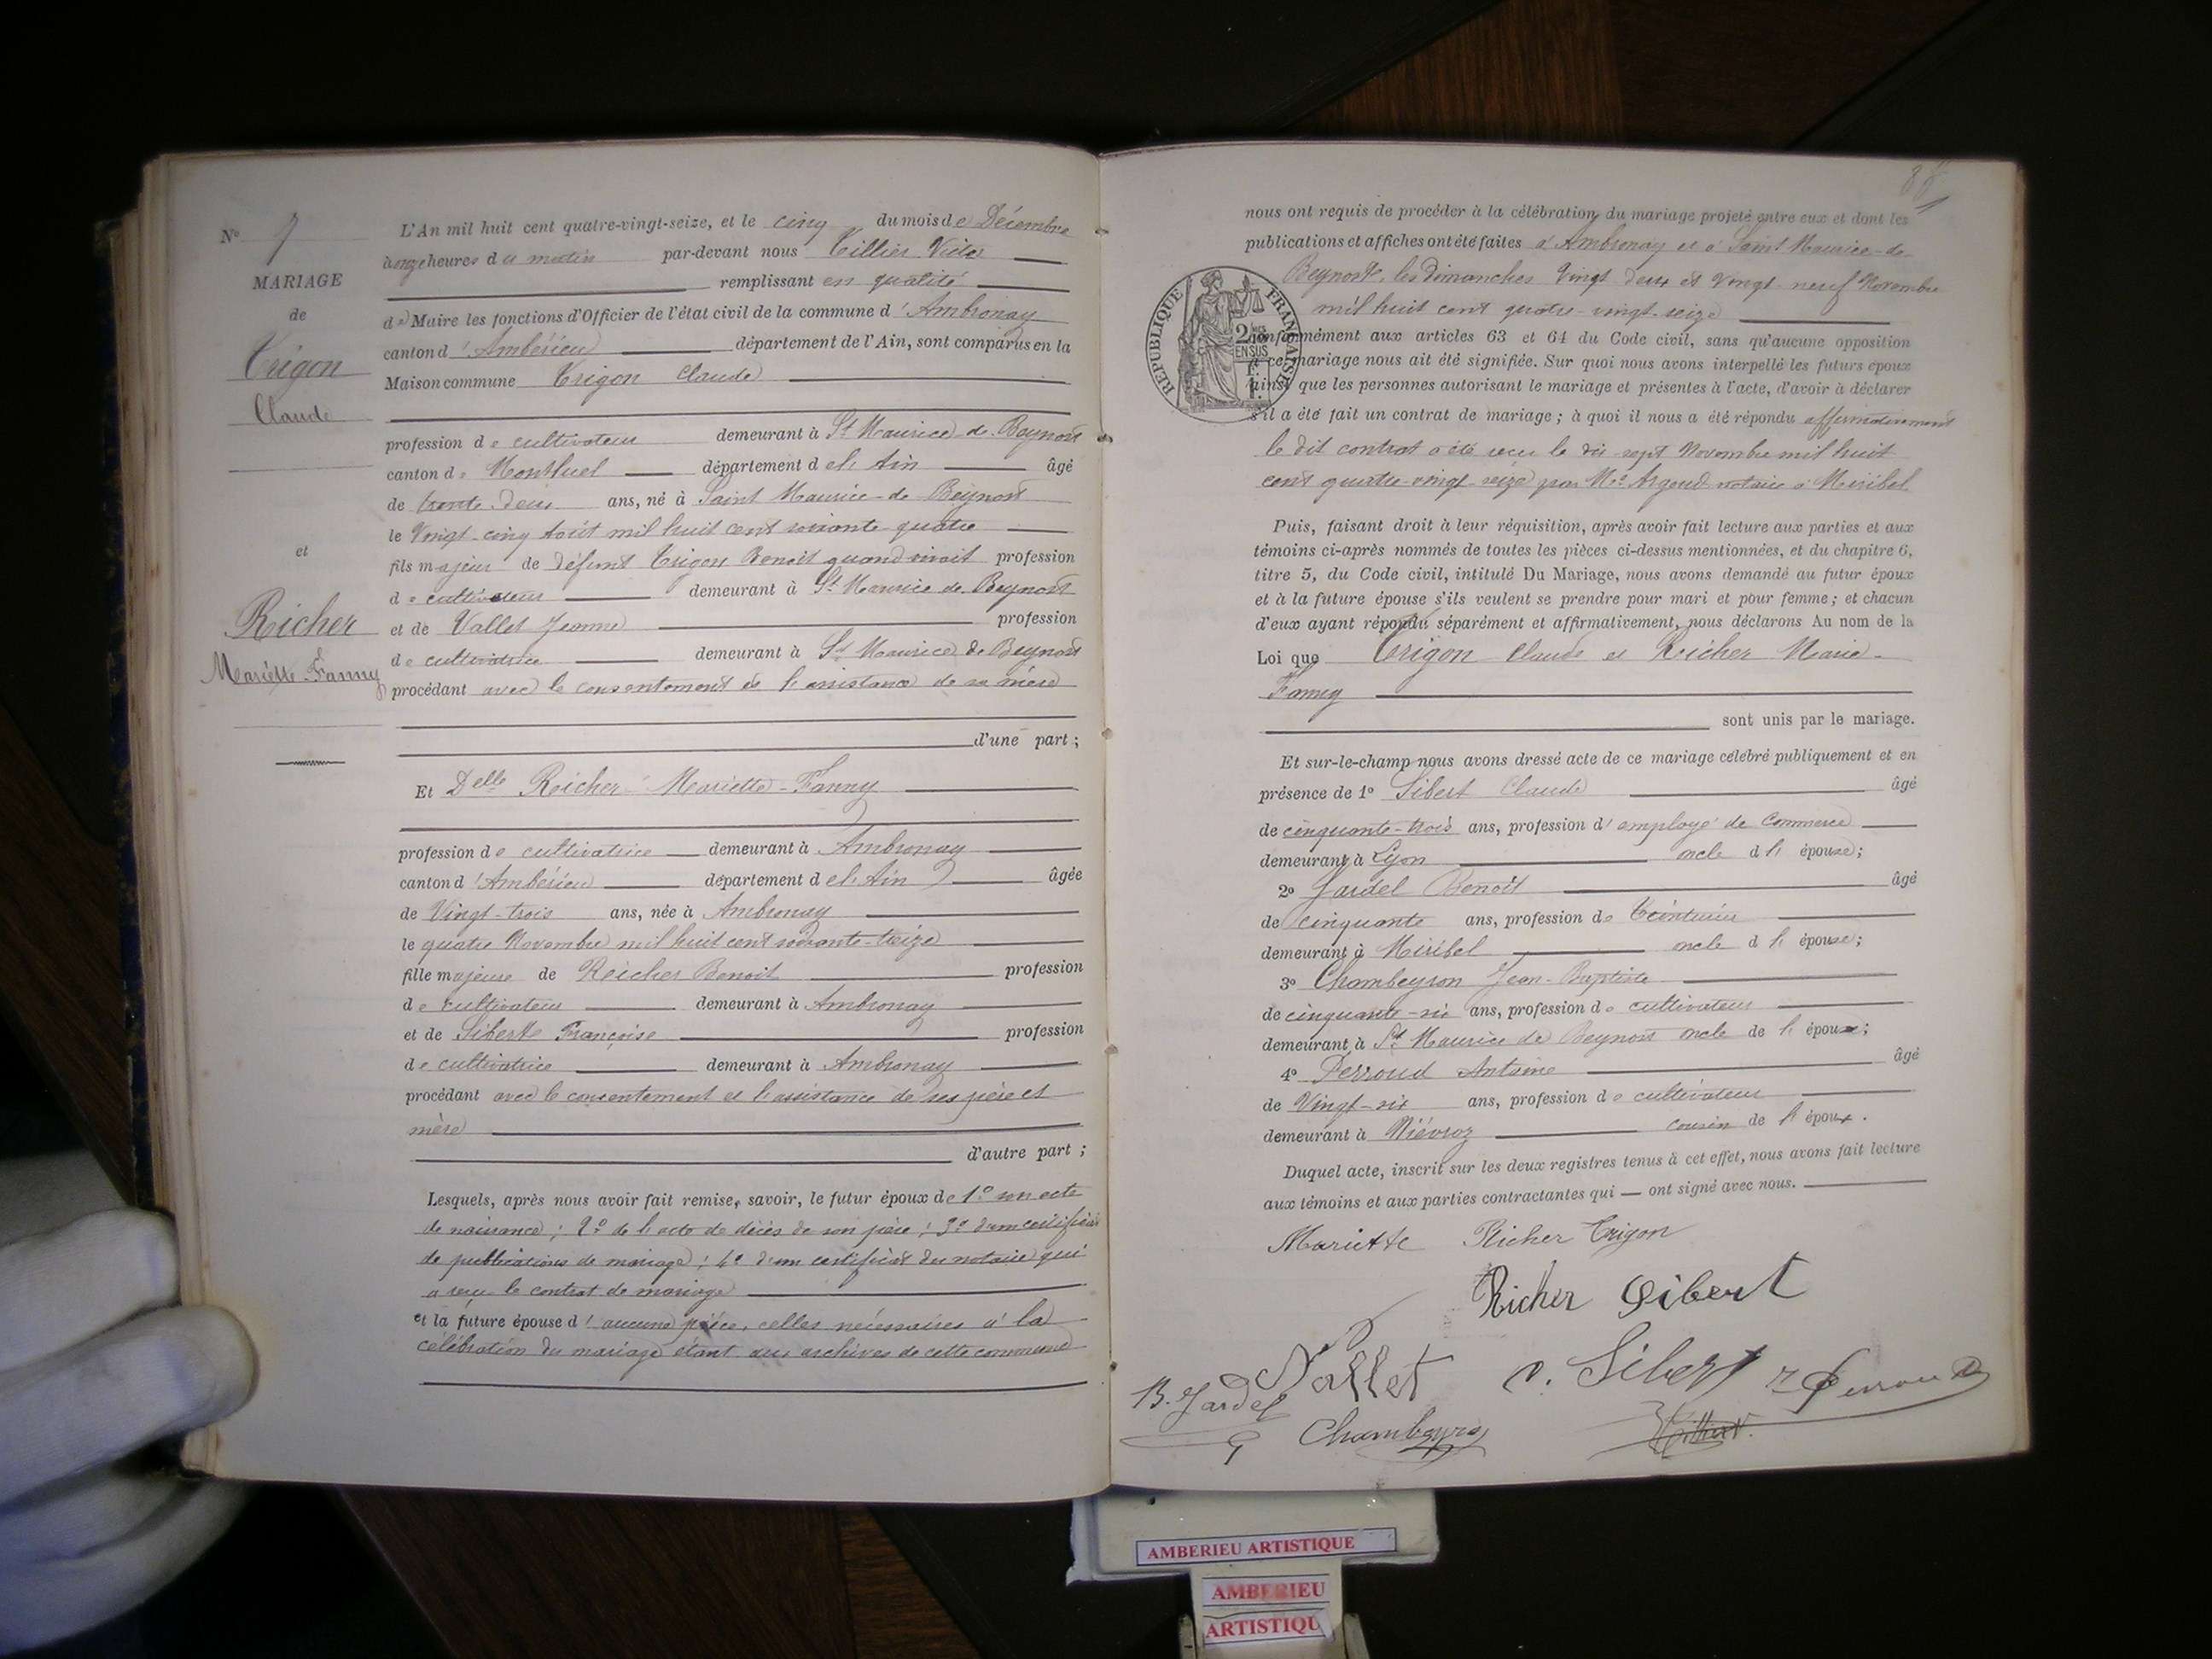 N° 7
MARIAGE
de
Trigon
Claude
et
Richer
Mariette Fanny
L'An mil huit cent quatre-vingt-seize, et le cinq du mois de Décembre
à onze heures du matin par-devant nous Tillier Victor
remplissant en qualité
de Maire les fonctions d'Officier de l'état civil de la commune d'Ambronay
canton d'Ambérieu département de l'Ain, sont comparus en la
Maison commune Trigon Claude
profession de cultivateur demeurant à St Maurice-de-Beynost
canton de Montluel département de l'Ain âgé
de trente-deux ans, né à Saint Maurice-de-Beynost
le Vingt-cinq Août mil huit cent soixante-quatre
fils majeur de défunt Trigon Benoit quand vivait profession
de cultivateur demeurant à St Maurice de Beynost
et de Vallet Jeanne profession
de cultivatrice demeurant à St Maurice de Beynost
procédant avec le consentement et l'assistance de sa mère
d'une part ;
Et Delle Richer Mariette-Fanny
profession de cultivatrice demeurant à Ambronay
canton d'Ambérieu département de l'Ain âgée
de Vingt-trois ans, née à Ambronay
le quatre Novembre mil huit cent soixante-treize
fille majeure de Richer Benoit profession
de cultivateur demeurant à Ambronay
et de Siberte Françoise profession
de cultivatrice demeurant à Ambronay
procédant avec le consentement et l'assistance de ses père et
mère
d'autre part ;
Lesquels, après nous avoir fait remise, savoir, le futur époux de 1° son acte
de naissance ; 2° de l'acte de décès de son père ; 3° d'un certificat
de publications de mariage ; 4° d'un certificat du notaire qui
a reçu le contrat de mariage
et la future épouse d'aucune pièce, celles nécessaires à la
célébration du mariage étant aux archives de cette commune
nous ont requis de procéder à la célébration du mariage projeté entre eux et dont les
publications et affiches ont été faites à Ambronay et à Saint Maurice-de-
Beynost, les dimanches Vingt deux et Vingt-neuf Novembre
mil huit cent quatre-vingt-seize
conformément aux articles 63 et 64 du Code civil, sans qu'aucune opposition
à ce mariage nous ait été signifiée. Sur quoi nous avons interpellé les futurs époux
ainsi que les personnes autorisant le mariage et présentes à l'acte, d'avoir à déclarer
s'il a été fait un contrat de mariage ; à quoi il nous a été répondu affirmativement
le dit contrat a été reçu le dix-sept Novembre mil huit
cent quatre-vingt-seize par Me Argoud notaire à Miribel
RÉPUBLIQUE FRANÇAISE
2 DMES EN SUS
Puis, faisant droit à leur réquisition, après avoir fait lecture aux parties et aux
témoins ci-après nommés de toutes les pièces ci-dessus mentionnées, et du chapitre 6,
titre 5, du Code civil, intitulé Du Mariage, nous avons demandé au futur époux
et à la future épouse s'ils veulent se prendre pour mari et pour femme ; et chacun
d'eux ayant répondu séparément et affirmativement, nous déclarons Au nom de la
Loi que Trigon Claude et Richer Marie-
Fanny
sont unis par le mariage.
Et sur-le-champ nous avons dressé acte de ce mariage célébré publiquement et en
présence de 1° Sibert Claude âgé
de cinquante-trois ans, profession d'employé de Commerce
demeurant à Lyon oncle d l'épouse ;
2° Jardel Benoît âgé
de cinquante ans, profession de teinturier
demeurant à Miribel oncle d l'épouse ;
3° Chambeyron Jean-Baptiste
de cinquante-six ans, profession de cultivateur
demeurant à St Maurice de Beynost oncle de l'époux ;
4° Perroud Antoine âgé
de Vingt-six ans, profession de cultivateur
demeurant à Niévroz cousin de l'époux.
Duquel acte, inscrit sur les deux registres tenus à cet effet, nous avons fait lecture
aux témoins et aux parties contractantes qui — ont signé avec nous.
Mariette Richer Trigon
Richer Sibert
Vallet C. Sibert Perroud
B. Jardel
Chambeyron
Tillier V.
AMBERIEU ARTISTIQUE
AMBERIEU
ARTISTIQU